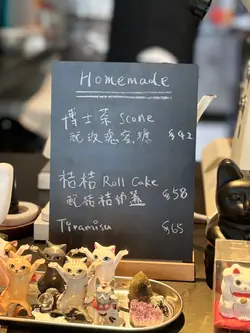 Homemade
博士茶 Scone
配玫瑰蜜糖 $42
桔桔 Roll Cake
配桔桔奶蓋 $58
Tiramisu $65